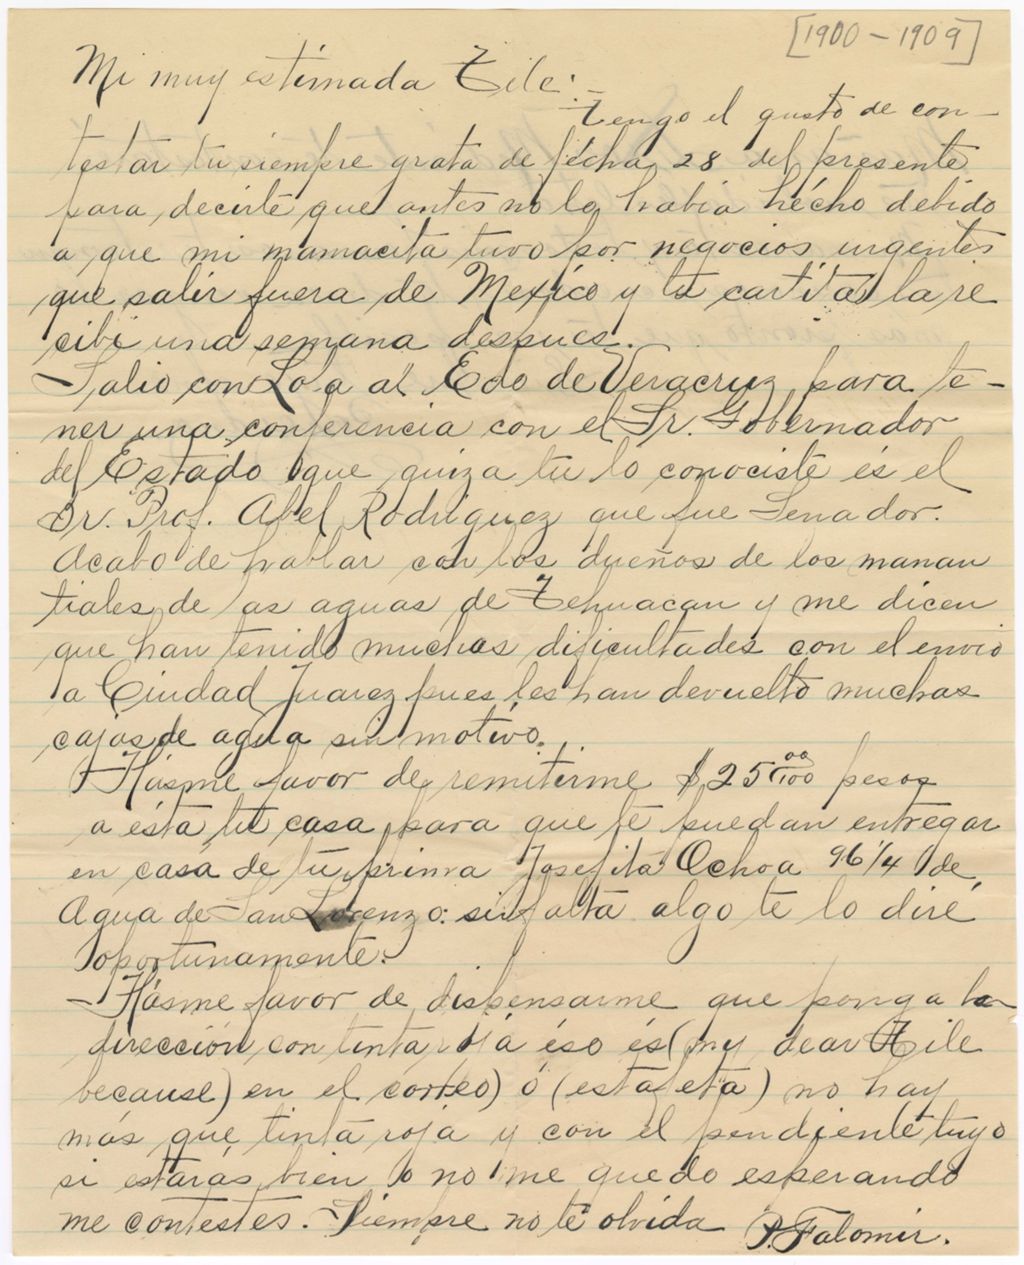 [1900-1909]
Mi muy estimada Tile:
Tengo el gusto de con-
testar tu siempre grata de fécha 28 del presente
para decirte que antes no lo habia hécho debido
a que mi mamacita tuvo por negocios urgentes
que salir fuera de México y tu cartíta la re
cibi una semana despues.
Salio con Lola al Edo de Veracruz para te-
ner una conferencia con el Sr. Gobernador
del Estado que quiza tu lo conociste és el
Sr. Prof. Abel Rodriguez que fue Senador.
Acabo de hablar con los dueños de los manan
tiales de las aguas de Tehuacan y me dicen
que han tenido muchas dificultades con el envio
a Ciudad Juarez pues les han devuelto muchas
cajas de agua sin motivo.
Hásme favor de remitirme $25 00/100 pesos
a ésta tu casa para que te puedan entregar
en casa de tu prima Josefita Ochoa 96 1/4 de
Agua de San Lorenzo: si falta algo te lo diré
oportunamente.
Hásme favor de dispensarme que ponga la
dirección con tinta roja éso és (my dear Tile
because) en el correo) ó (estafeta) no hay
más que tinta roja y con el pendiente tuyo
si estarás bien o no me quedo esperando
me contestes. Siempre no te olvida P. Falomir.